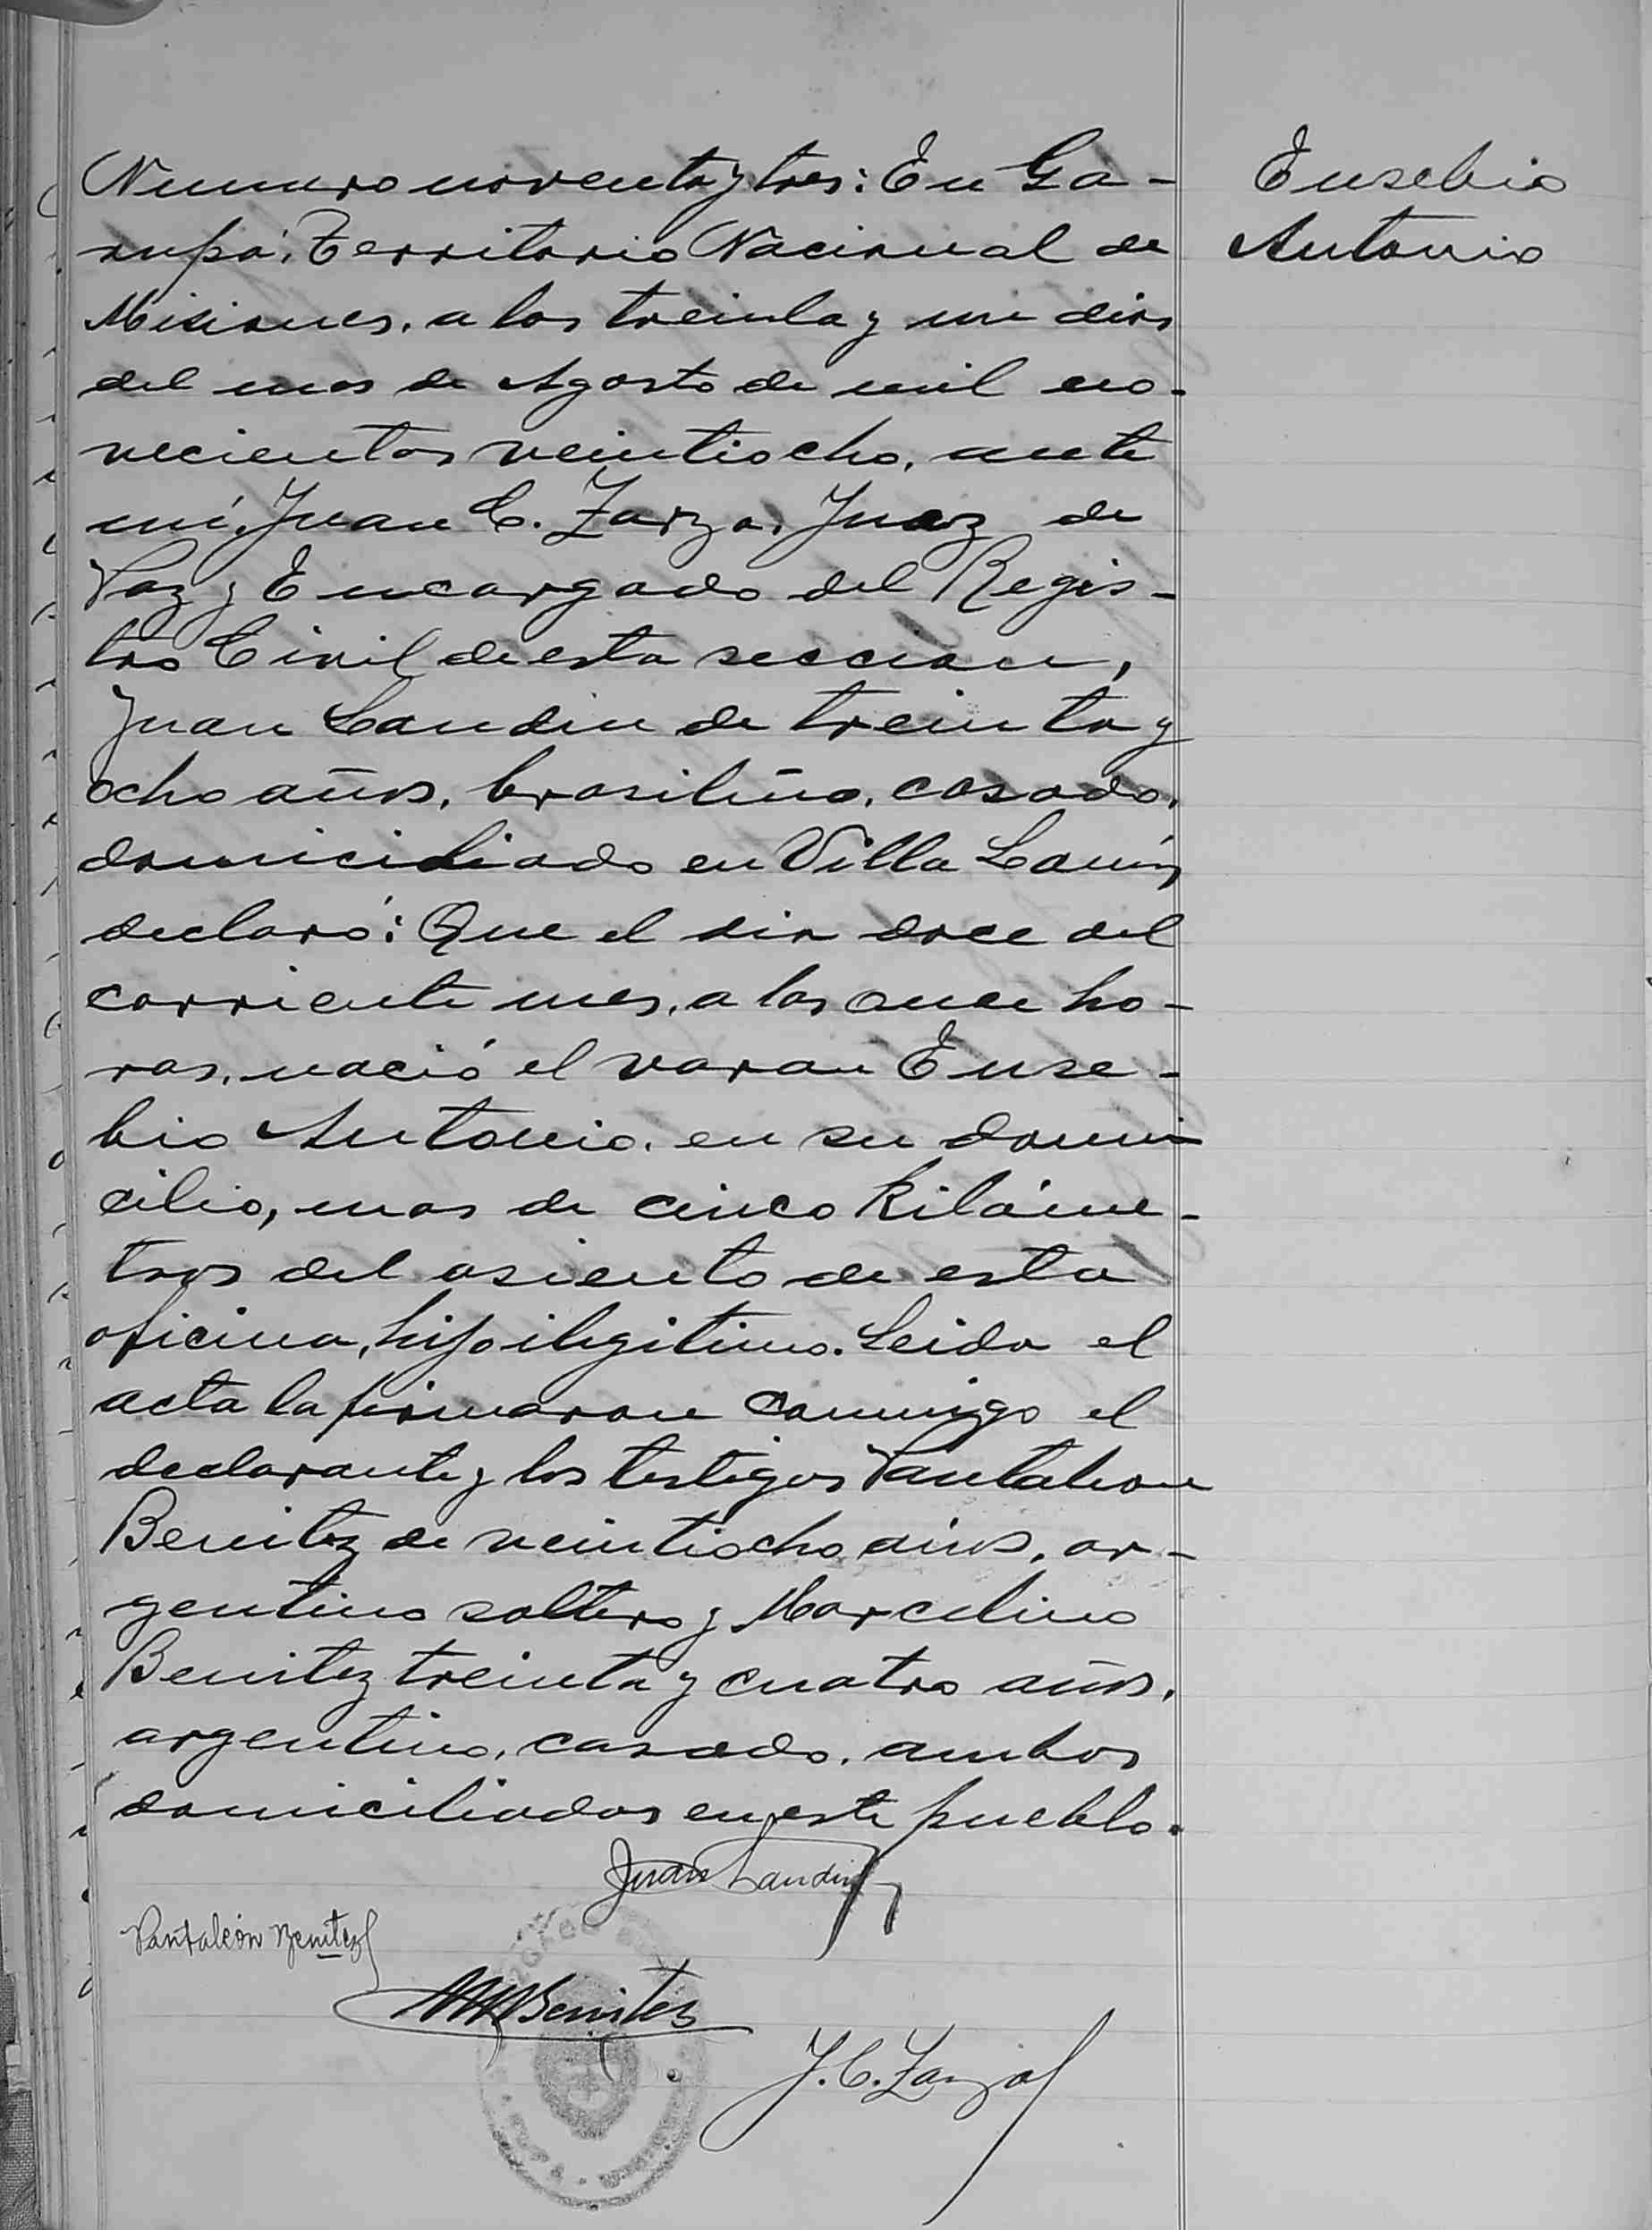 Numero noventa y tres: En Ga-
rupá, Territorio Nacional de
Misiones, a los treinta y un dias
del mes de Agosto de mil no-
vecientos veintiocho, ante
mí, Juan C. Zarza, Juez de
Paz y Encargado del Regis-
tro Civil de esta seccion,
Juan Landin de treinta y
ocho años, brasileño, casado,
domiciliado en Villa Lanús
declaró: Que el dia doce del
corriente mes, a las once ho-
ras, nació el varon Euse-
bio Antonio, en su domi-
cilio, mas de cinco kilóme-
tros del asiento de esta
oficina, hijo ilegitimo. Leida el
acta la firmaron conmigo el
declarante y los testigos Pantaleon
Benitez de veintiocho años, ar-
gentino soltero y Marcelino
Benitez treinta y cuatro años,
argentino, casado, ambos
domiciliados en este pueblo.
Eusebio
Antonio
Juan Landin
Pantaleón Benitez
M Benitez
J. C. Zarza